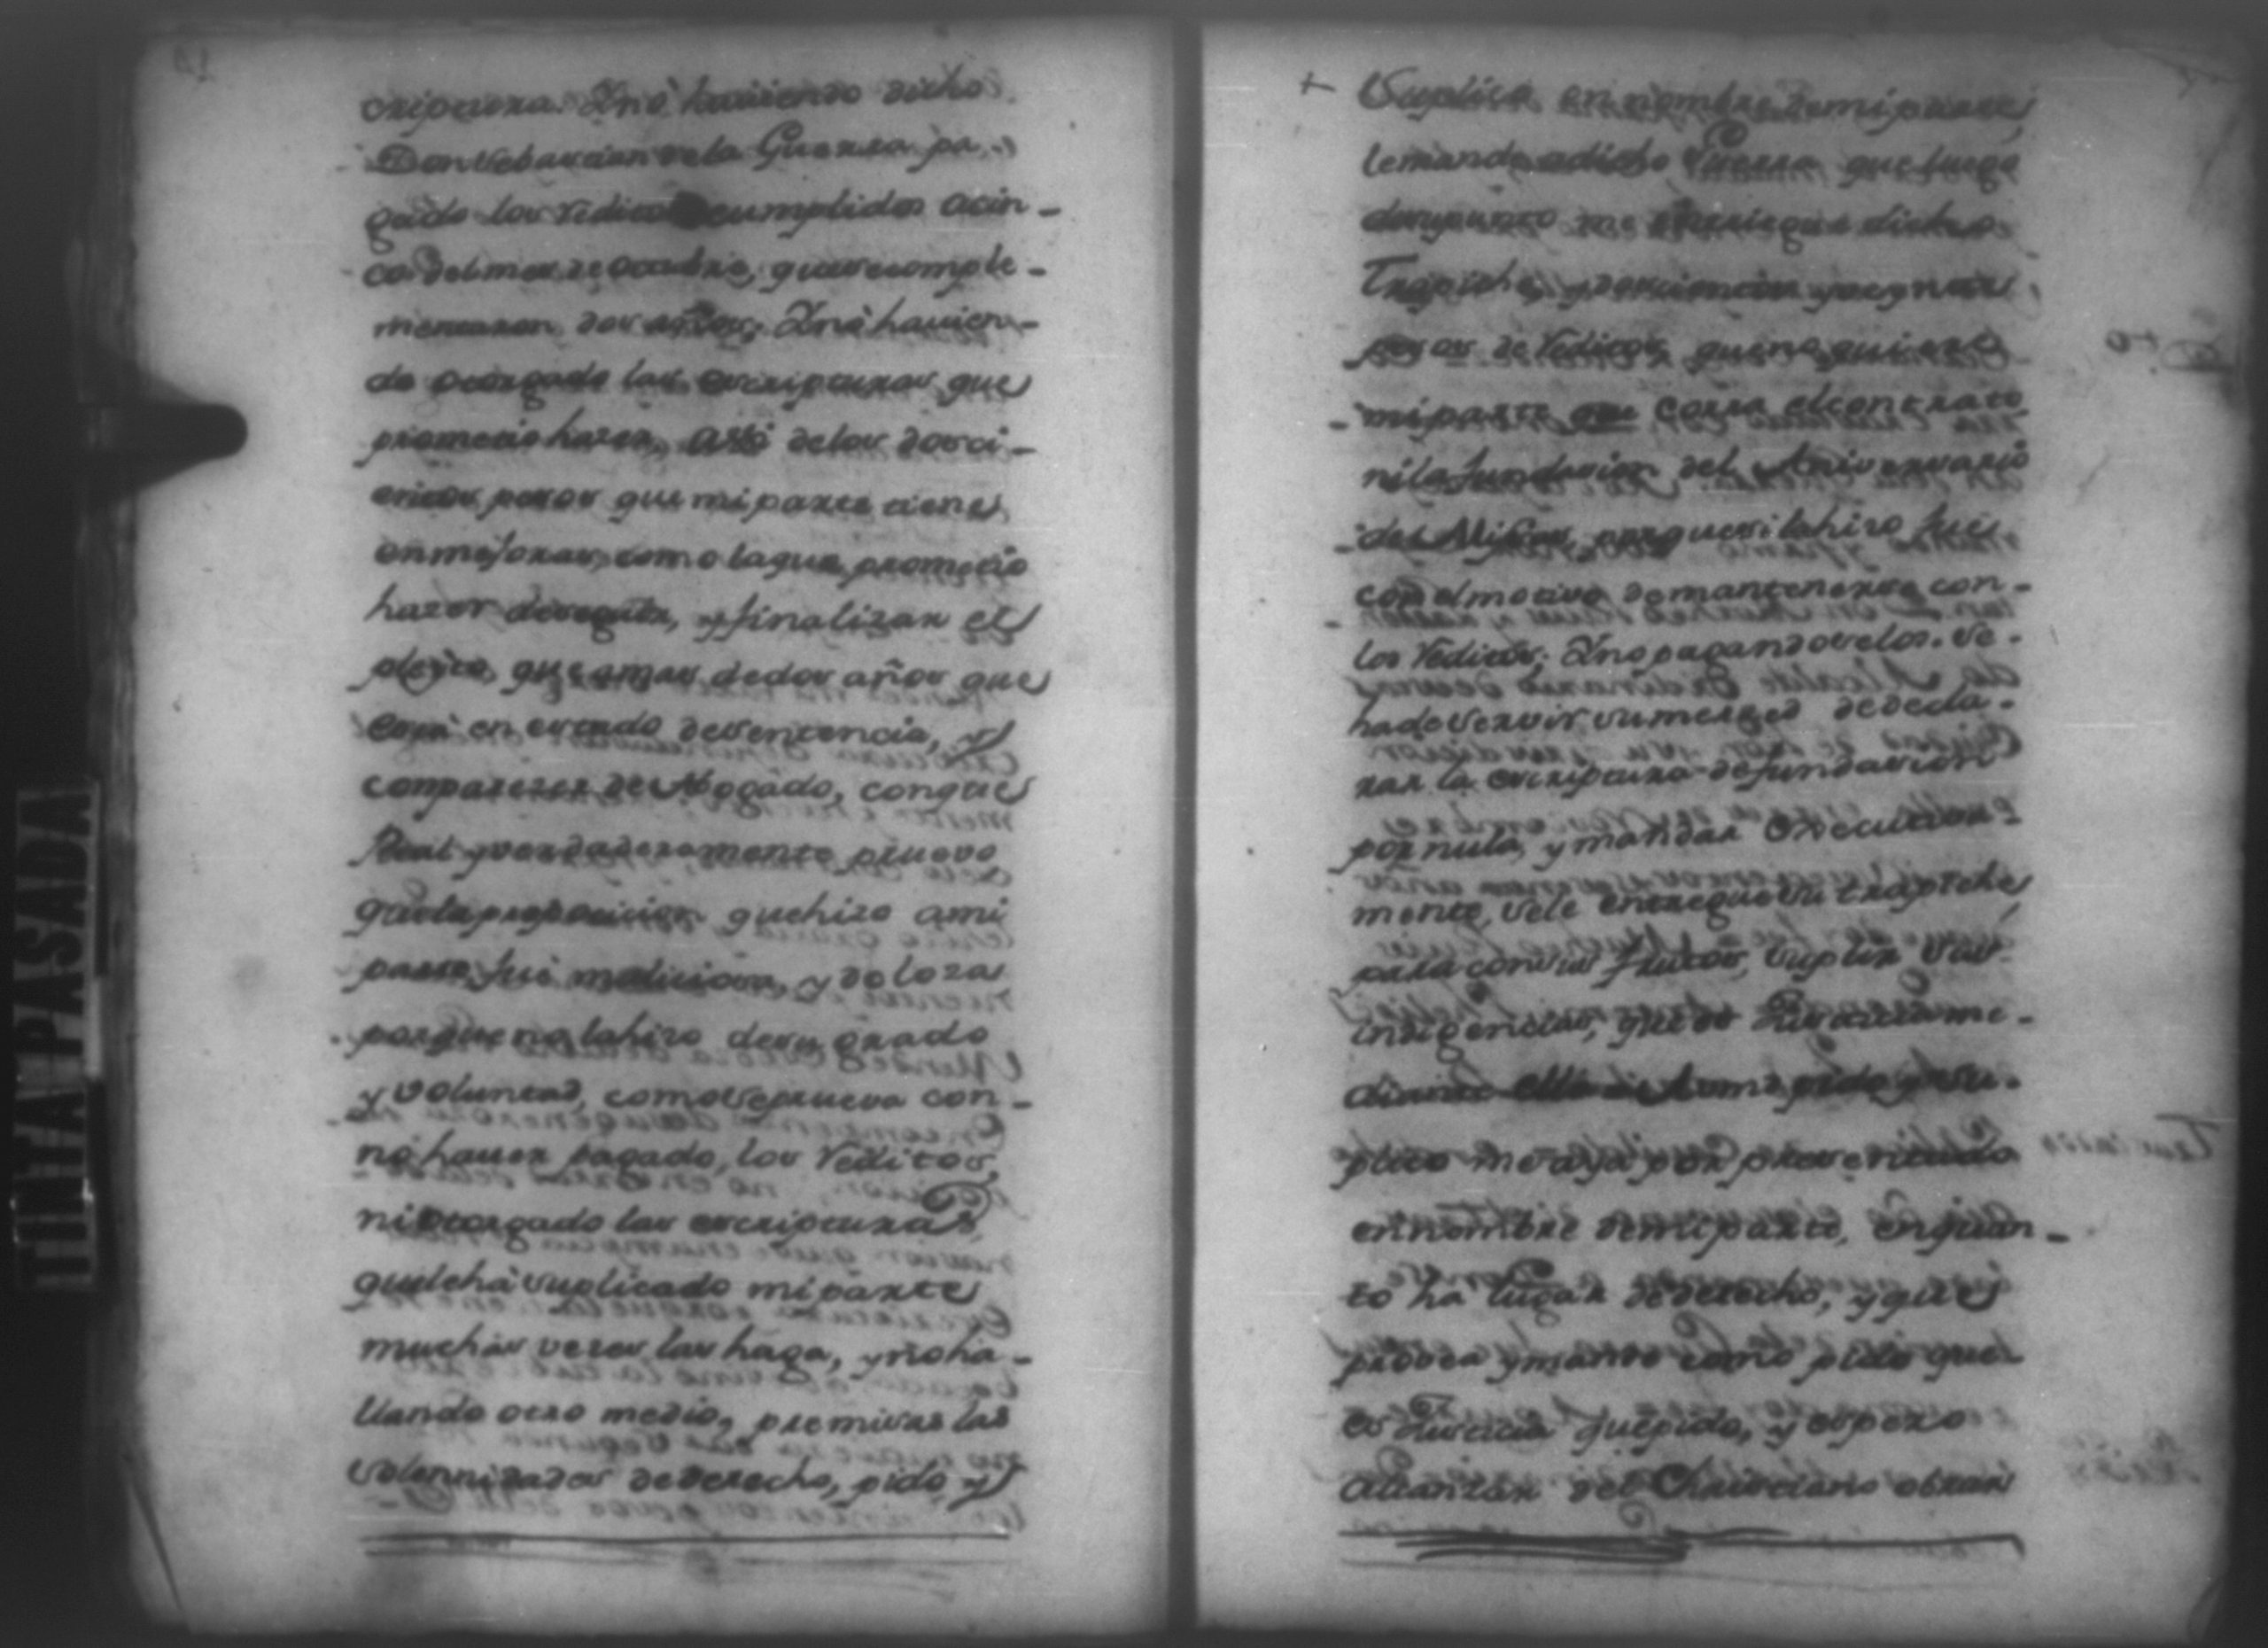 cripcura. Y no haviendo dicho
Don Sebastian de la Guerra pa-
gado los reditos cumplidos a cin-
co del mes de Octubre, que se comple-
mentaron dos años; Y no havien-
do otorgado las escripturas que
prometio hazer, assi de los dosci-
entos pesos que mi parte tiene
en mejoras, como la que prometio
hazer, y finalizar el
pleyto, que a mas de dos años que
està en estado de sentencia, y
con parecer de Abogado, con que
Real y verdaderamente pruevo
que la proposicion que hizo a mi
parte fue maliciosa, y
porque no la hizo de su grado
y voluntad, como se prueva con-
no haver pagado los reditos,
ni otorgado las escripturas,
que le há suplicado mi parte
muchas vezes las haga, y no ha-
llando otro medio, premisas las
solennidades de derecho, pido y
Suplico en nombre de mi parte
le mande a dicho Guerra que luego
me entriegue dicho
Trapiche, y
pesos de reditos, que no quiere
mi parte que corra el contrato
ni la fundasion del Aniversario
de Misas, porque si la hizo fue
con el motivo de mantenerse con-
los reditos; Y no pagandoselos. Se-
ha de servir su merzed de decla-
rar la escriptura de fundasion
por nula, y mandar execucion-
mente, se le entregue su trapiche
para con sus frutos, suplir sus
indigencias, que es Justicia me-
diante ella
plico me aya por presentado
en nombre de mi parte, en quan-
to há lugar de derecho, y que
provea y mande como pido que
es Justicia que pido, y espero
alcanzar del Christiano obrar
TUTA PAISADA